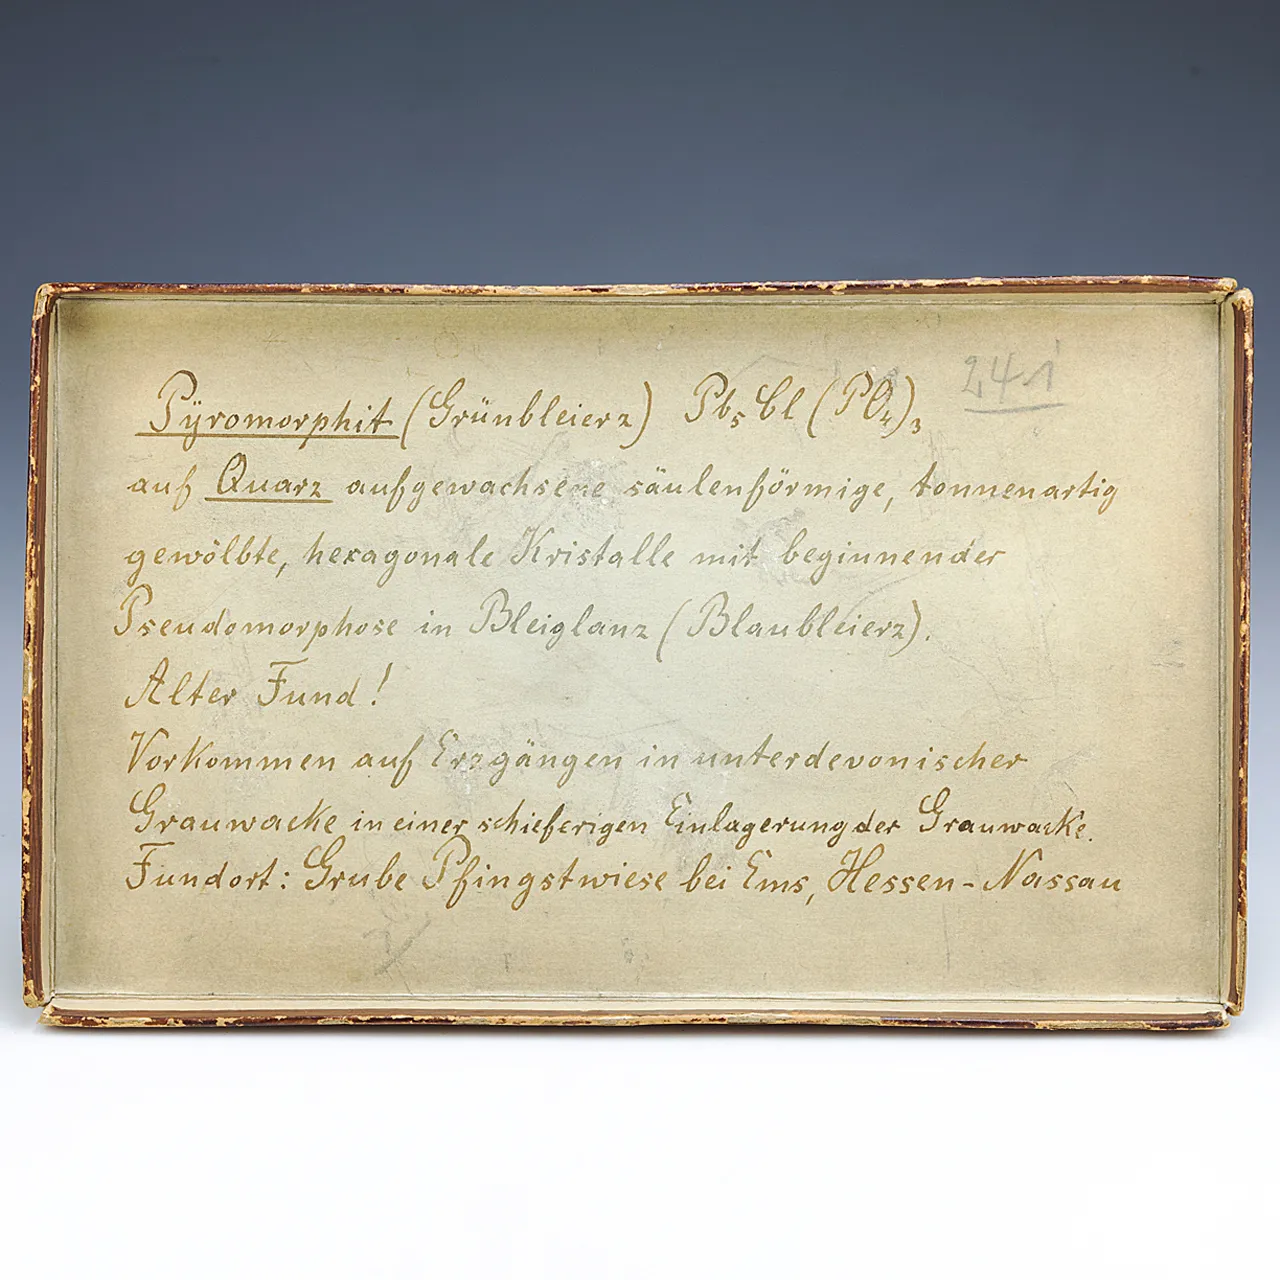 24.1
Pÿromorphit (Grünbleierz) Pb₅Cl(PO₄)₃
auf Quarz aufgewachsene säulenförmige, tonnenartig
gewölbte, hexagonale Kristalle mit beginnender
Pseudomorphose in Bleiglanz (Blaubleierz).
Alter Fund!
Vorkommen auf Erzgängen in unterdevonischer
Grauwacke in einer schieferigen Einlagerung der Grauwacke.
Fundort: Grube Pfingstwiese bei Ems, Hessen-Nassau